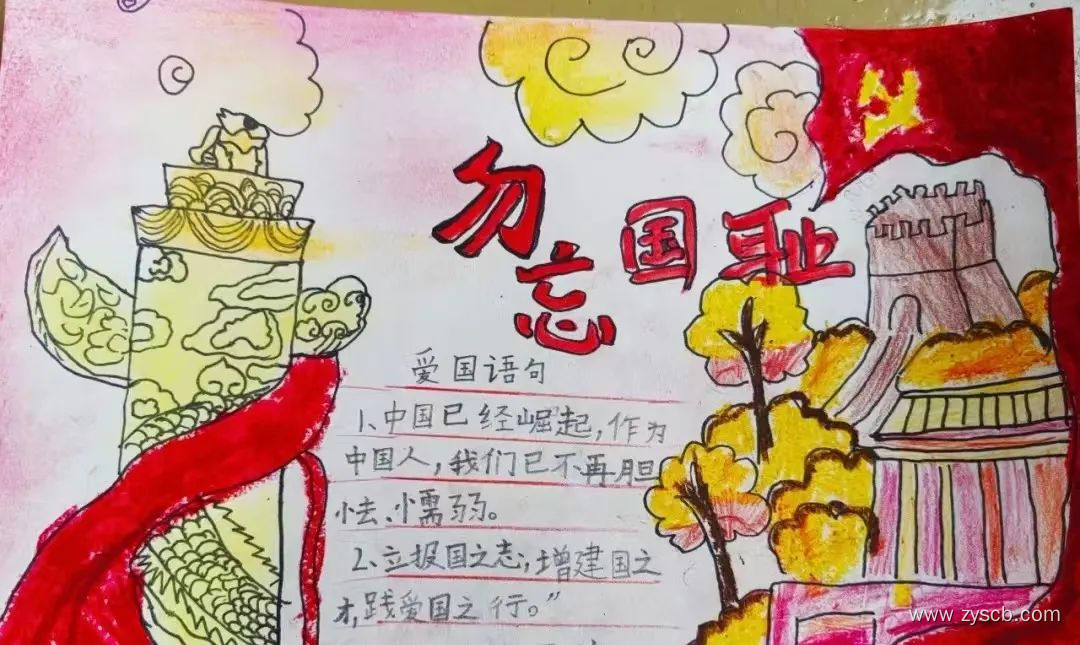 勿忘国耻
爱国语句
1、中国已经崛起，作为
中国人，我们已不再胆
怯、懦弱。
2、立报国之志；增建国之
才，践爱国之行。”
www.zyscb.com